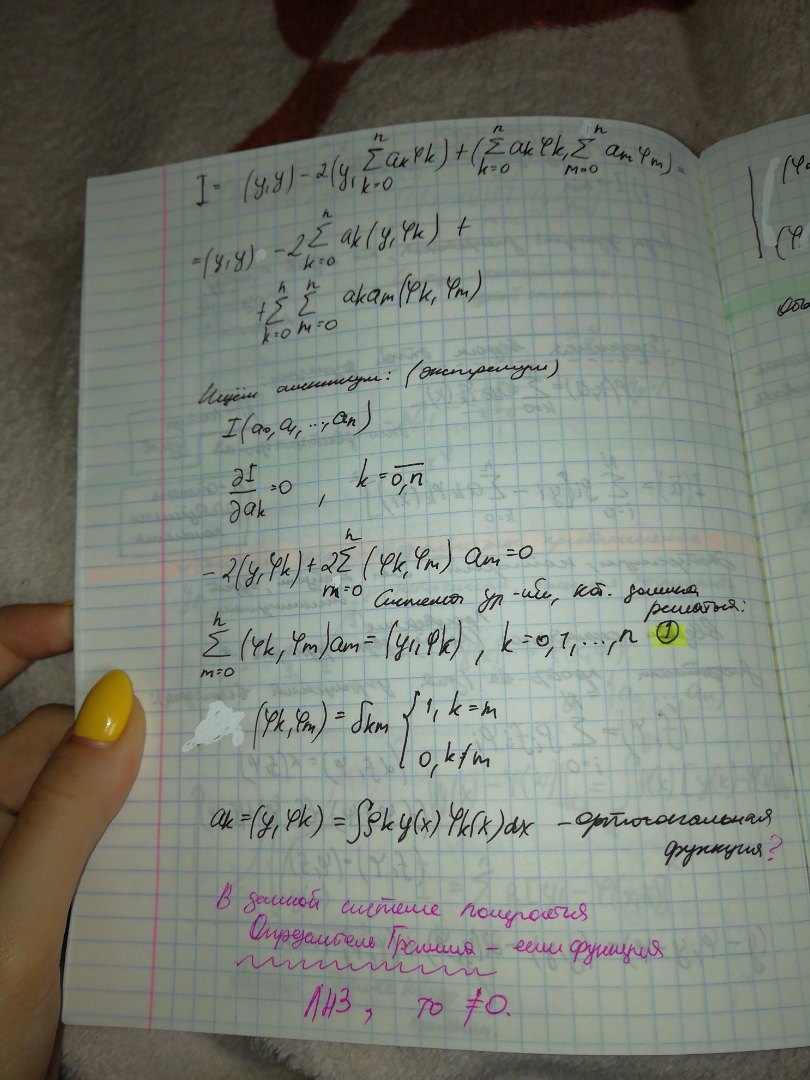 I = (y,y) - 2(y, \sum_{k=0}^{n} ak φk) + (\sum_{k=0}^{n} ak φk, \sum_{m=0}^{n} am φm) =
= (y,y) - 2 \sum_{k=0}^{n} ak (y, φk) +
+ \sum_{k=0}^{n} \sum_{m=0}^{n} ak am (φk, φm)
Ищем минимум: (экстремум)
I(a0, a1, ..., an)
∂I/∂ak = 0 , k = \overline{0,n}
- 2(y, φk) + 2 \sum_{m=0}^{n} (φk, φm) am = 0
Система ур-ий, кот. должна
решаться:
\sum_{m=0}^{n} (φk, φm) am = (y, φk) , k = 0, 1, ..., n ①
(φk, φm) = δkm { 1, k = m
0, k ≠ m
ak = (y, φk) = ∫ρk y(x) φk(x) dx - ортогональная
функция?
В данной системе
Определитель Грамма - если функция
ЛНЗ, то ≠ 0.